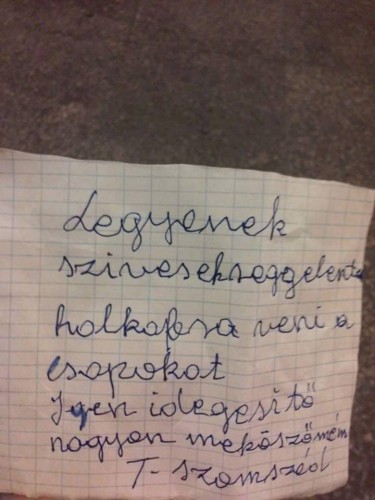 Legyenek
szivesekseggelente
halkabsa veni a
csapokat
Igen idegesitő
nagyon mekőszőmém
T-szomszéd